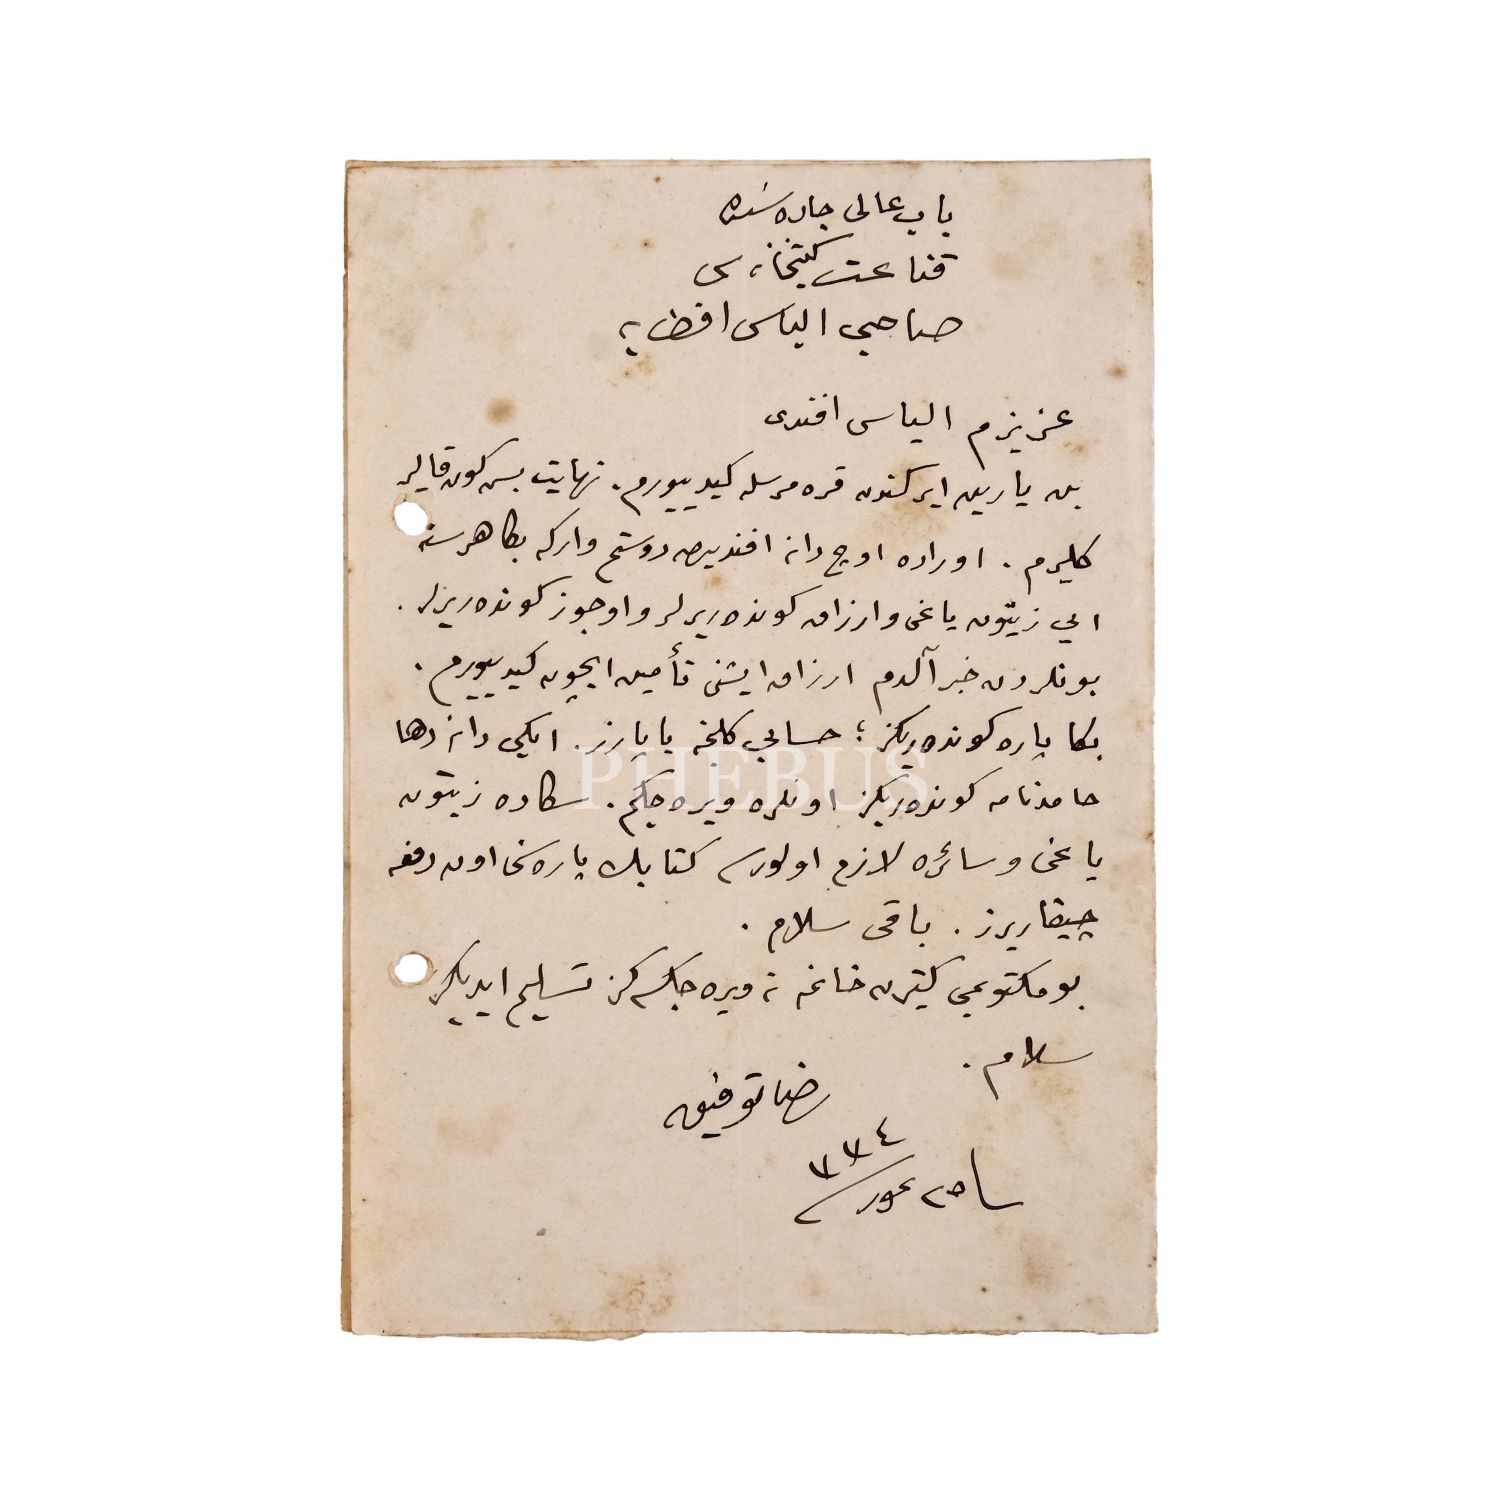 باب عالی جاده‌سنده
قناعت كتبخانه‌سی
صاحبی الیاس افندی‌یه
عزیزم الیاس افندی
بن یارین ایركندن قره مرسله كیدییورم. نهایت بش كون قالیر
كلیرم. اوراده اوچ دانه افندیدن دوستم واركه بكا هر سنه
ایی زیتون یاغی وارزاق كوندەریرلر واوجوز كوندەریرلر.
بونلردن خبر آلدم ارزاق ایشنی تأمین ایچون كیدییورم.
بكا پاره كوندەریكز؛ حسابی كلنجه یاپارز. ایكی دانه دها
حامدنامه كوندەریكز اونلره ویره‌جكم. سكاده زیتون
یاغی وسائره لازم اولورسه كتابك پاره‌سنی اون دفعه
چیقاریرز. باقی سلام.
بو مكتوبمی كتیرن خانمه نه ویره‌جكسه‌كز تسلیم ایدیكز
سلام.
رضا توفیق
PHEBUS